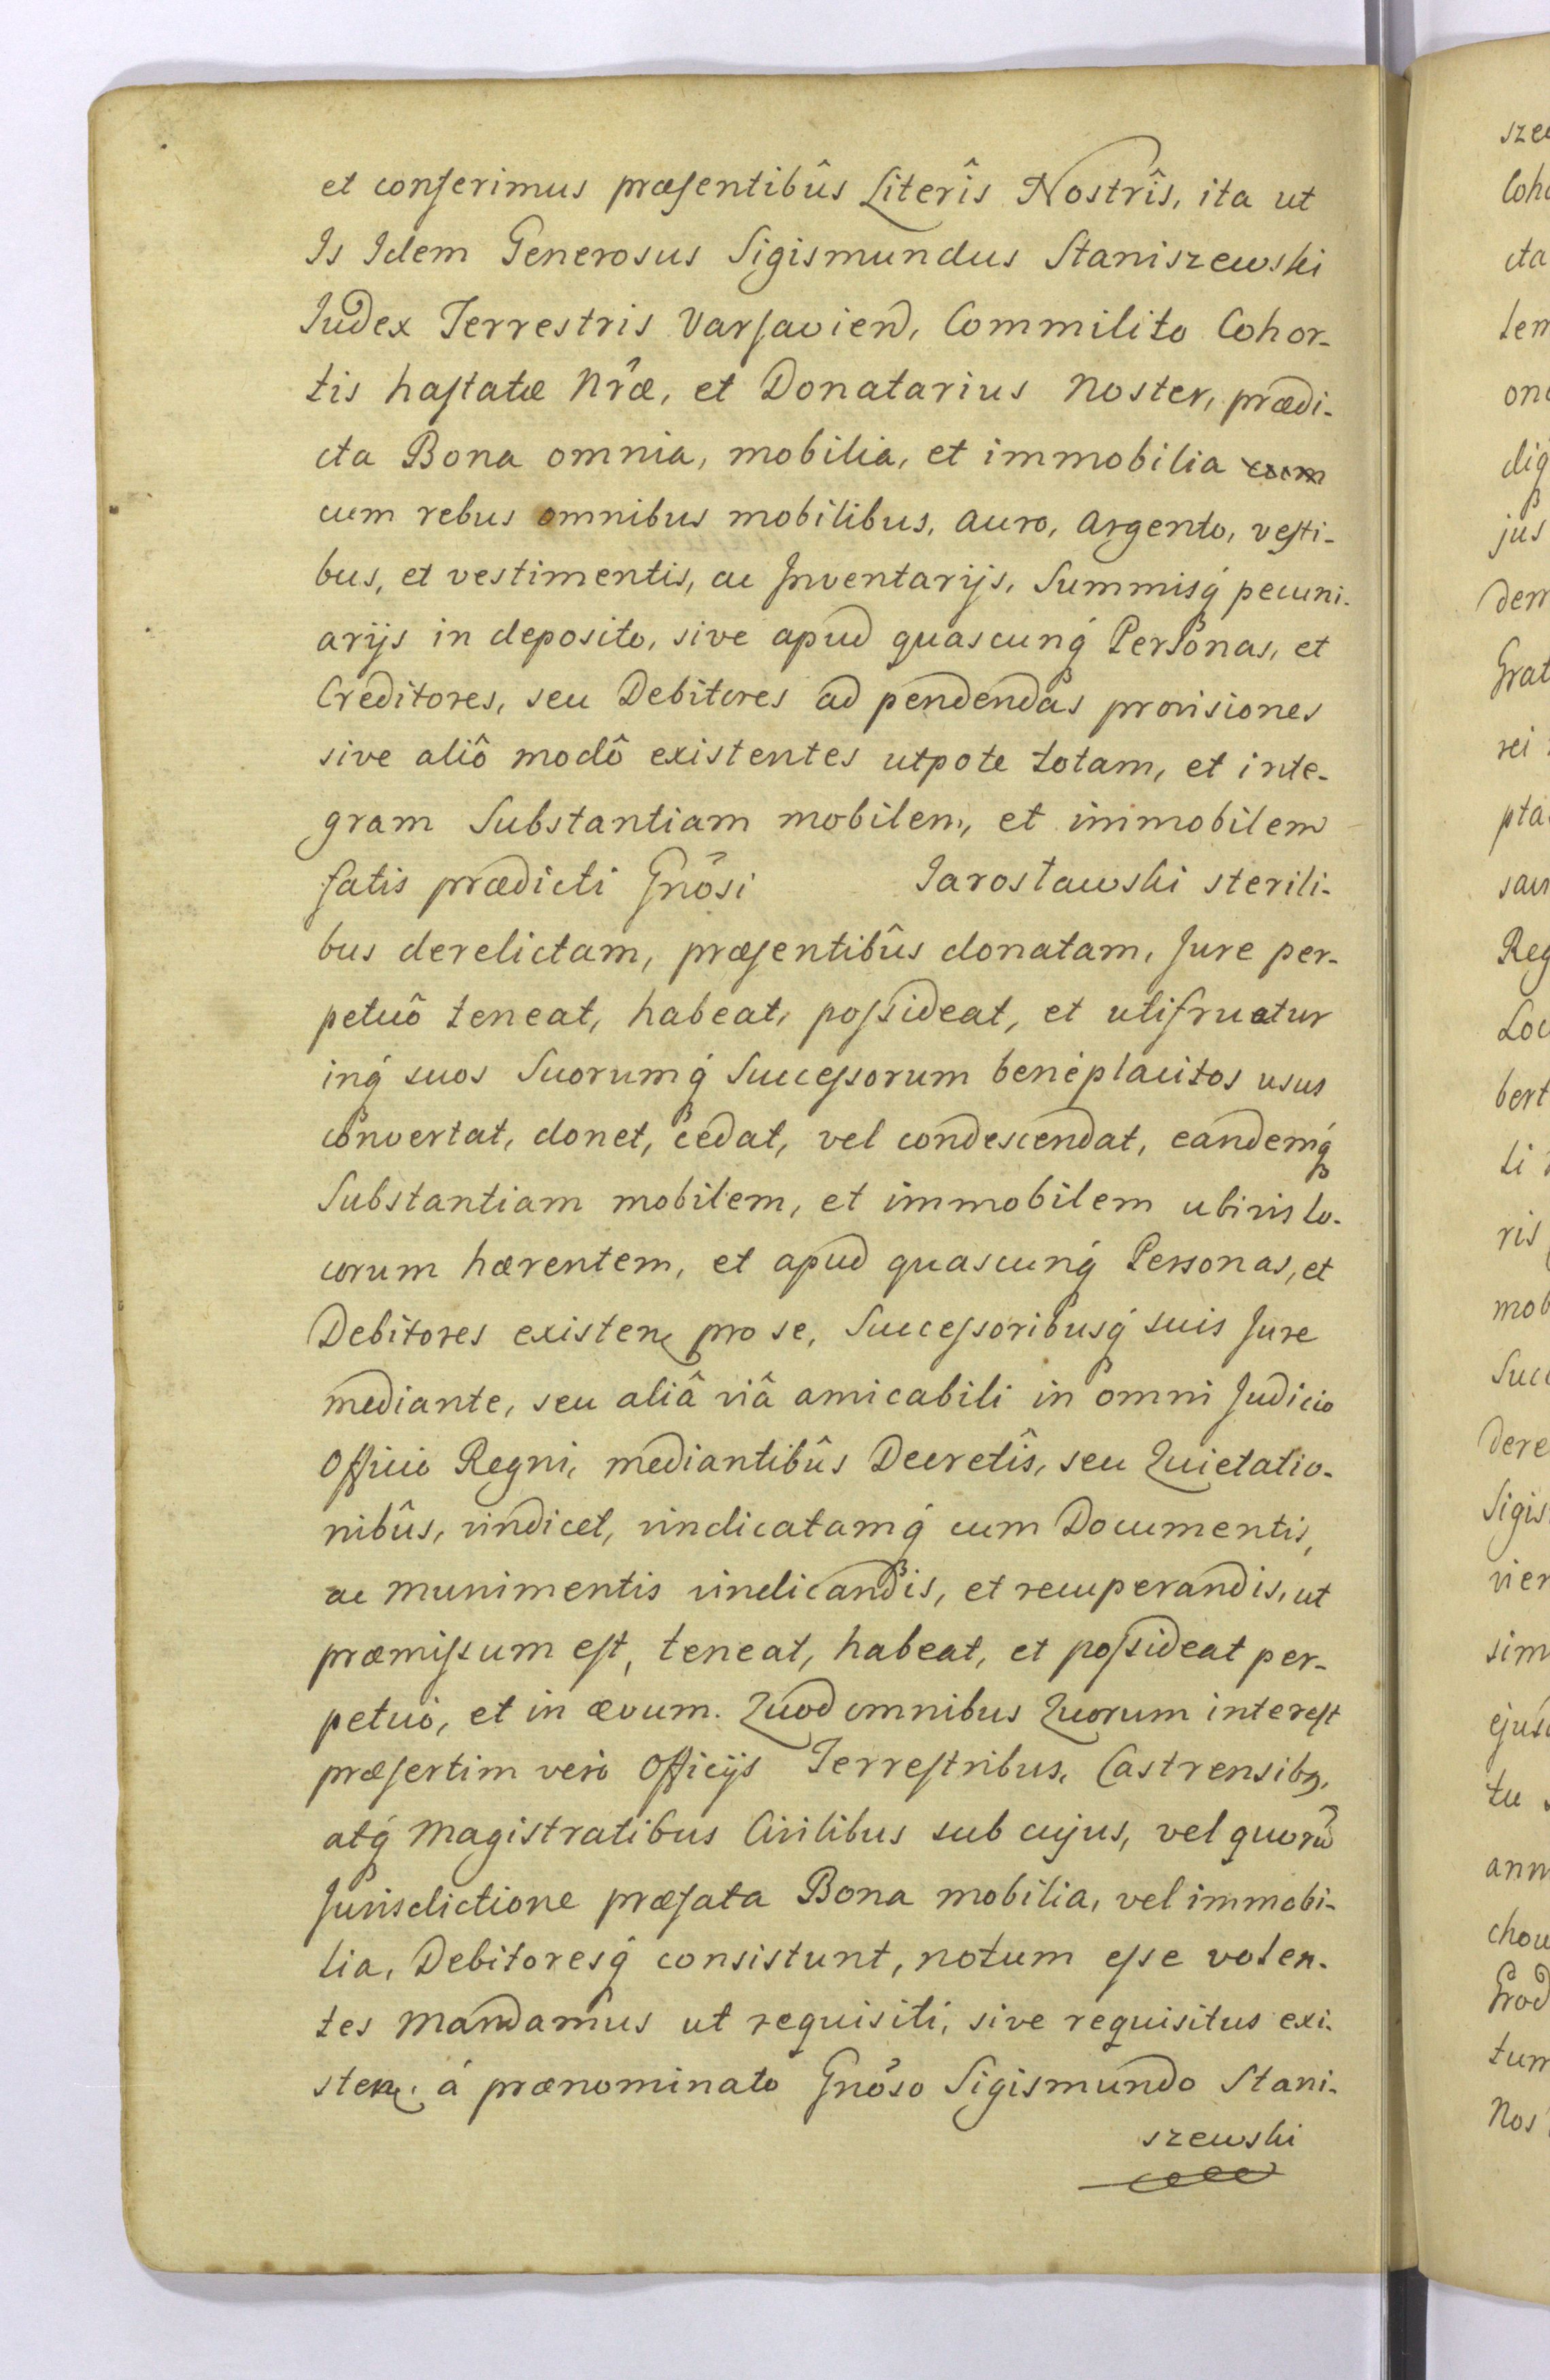 et conferimus præsentibûs Literîs Nostrîs, ita ut
Is Idem Generosus Sigismundus Staniszewski
Iudex Terrestris Varsavien, Commilito Cohor-
tis hastatæ Nræ, et Donatarius Noster, prædi-
cta Bona omnia, mobilia, et immobilia cum
cum rebus omnibus mobilibus, auro, argento, vesti-
bus, et vestimentis, ac Inventarijs, Summisq́ pecuni-
arijs in deposito, sive apud quascunq́ Personas, et
Creditores, seu Debitores ad pendendas provisiones
sive aliô modô existentes utpote totam, et inte-
gram Substantiam mobilem, et immobilem
fatis prædicti Gnõsi Jarosławski sterili-
bus derelictam, præsentibûs donatam, Jure per-
petuô teneat, habeat, possideat, et utifruatur
inq́ suos Suorumq́ Successorum benéplacitos usus
convertat, donet, cedat, vel condescendat, eandemq́
Substantiam mobilem, et immobilem ubivis lo-
corum hærentem, et apud quascunq́ Personas, et
Debitores existen, pro se, Successoribusq́ suis Jure
mediante, seu aliâ viâ amicabili in omni Judicio
Officio Regni, mediantibûs Decretîs, seu Quietatio-
nibûs, vindicet, vindicatamq́ cum Documentis,
ac munimentis vindicandis, et recuperandis, ut
præmissum est, teneat, habeat, et possideat per-
petuò, et in ævum. Quod omnibus Quorum interest
præsertim verò Officijs Terrestribus, Castrensibq,
atq́ Magistratibus Civilibus sub cujus, vel quorũ
Jurisdictione præfata Bona mobilia, vel immobi-
lia, Debitoresq́ consistunt, notum esse volen-
tes mandamus ut requisiti, sive requisitus exi-
sten, á prænominato Gnõso Sigismundo Stani-
szewski
szew
Coho
cta
tem
ono
dig
jus
dem
Grat
rei
pta
sam
Reg
Loc
bert
ti
ris
mob
Succ
dere
Sigis
vien
sim
ejusd
tu
ann
chow
Grod
tum
Nos